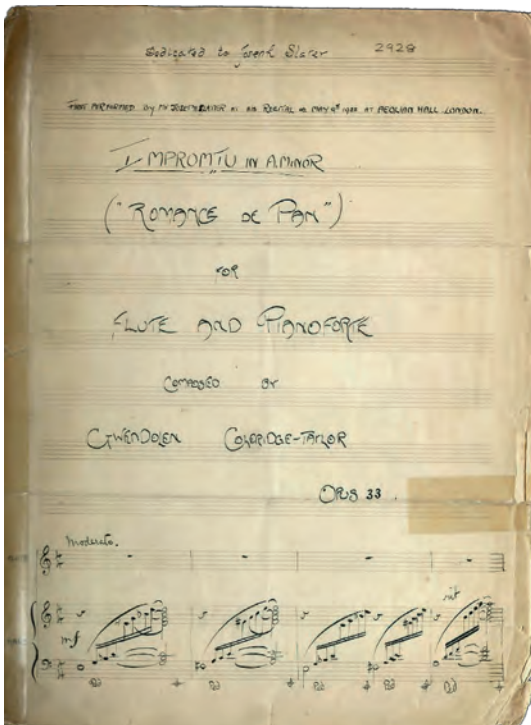 Dedicated to Joseph Slater 2928
FIRST PERFORMED BY MR JOSEPH SLATER AT HIS RECITAL ON MAY 9th AT AEOLIAN HALL LONDON.
IMPROMTU IN A MINOR
("ROMANCE DE PAN")
FOR
FLUTE AND PIANOFORTE
COMPOSED BY
GWENDOLEN COLERIDGE-TAYLOR
OPUS 33.
Moderato.
rit
mf